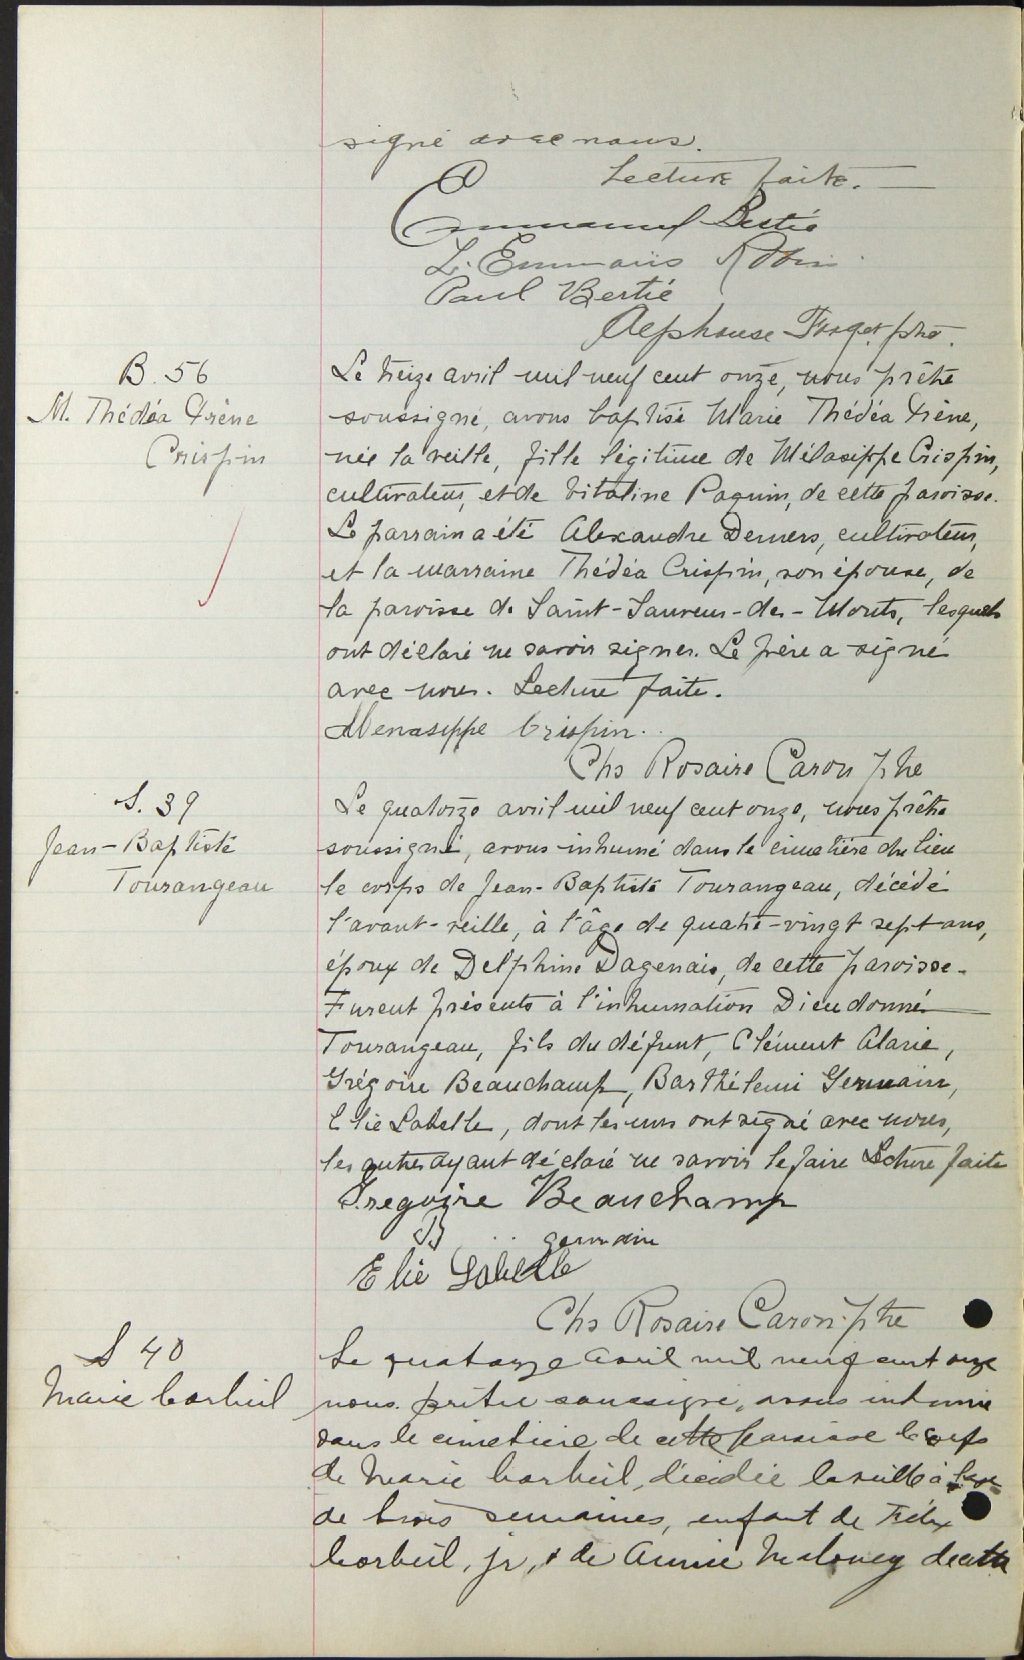 signé avec nous.
Lecture faite.
Emmanuel Bertié
L. Emmaüs Robin
Paul Bertié
Alphonse Forget ptre.
B. 56
M. Thédéa Irène
Crispin
Le treize avril mil neuf cent onze, nous prêtre
soussigné, avons baptisé Marie Thédéa Irène,
née la veille, fille légitime de Mélasippe Crispin,
cultivateur, et de Vitaline Paquin, de cette paroisse.
Le parrain a été Alexandre Demers, cultivateur,
et la marraine Thédéa Crispin, son épouse, de
la paroisse de Saint-Sauveur-des-Monts, lesquels
ont déclaré ne savoir signer. Le père a signé
avec nous. Lecture faite.
Menasippe Crispin.
Chs Rosaire Caron ptre
S. 39
Jean-Baptiste
Tourangeau
Le quatorze avril mil neuf cent onze, nous prêtre
soussigné, avons inhumé dans le cimetière du lieu
le corps de Jean-Baptiste Tourangeau, décédé
l'avant-veille, à l'âge de quatre-vingt sept ans,
époux de Delphine Dagenais, de cette paroisse.
Furent présents à l'inhumation Dieudonné
Tourangeau, fils du défunt, Clément Alarie,
Grégoire Beauchamp, Barthélemi Germain,
Elie Labelle, dont les uns ont signé avec nous,
les autres ayant déclaré ne savoir le faire Lecture faite
Gregoire Beauchamp
B germain
Elie Labelle
Chs Rosaire Caron ptre
S 40
Marie Corbeil
Le quatorze avril mil neuf cent onze
nous prêtre soussigné, avons inhumé
dans le cimetière de cette paroisse le corps
de Marie Corbeil, décédée la veille à l'age
de trois semaines, enfant de Félix
Corbeil, jr, & de Annie Maloney de cette